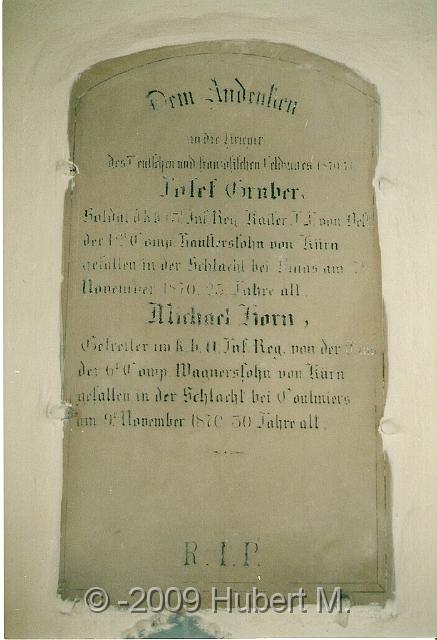 Dem Andenken
an die Krieger
des Deutschen und französischen Feldzuges 1870/71
Josef Gruber,
Soldat d. k. b. Inf. Reg. Kaiser F. J. von
der 1ten Comp. von Kürn
gefallen in der Schlacht bei am
November 1870, 25 Jahre alt.
Michael Horn,
Gefreiter im k. b. 11. Inf. Reg. von der Tann
der 6t Comp. Wagnerssohn von Kürn
gefallen in der Schlacht bei Coulmiers
am 9t November 1870 30 Jahre alt.
R. I. P.
© -2009 Hubert M.